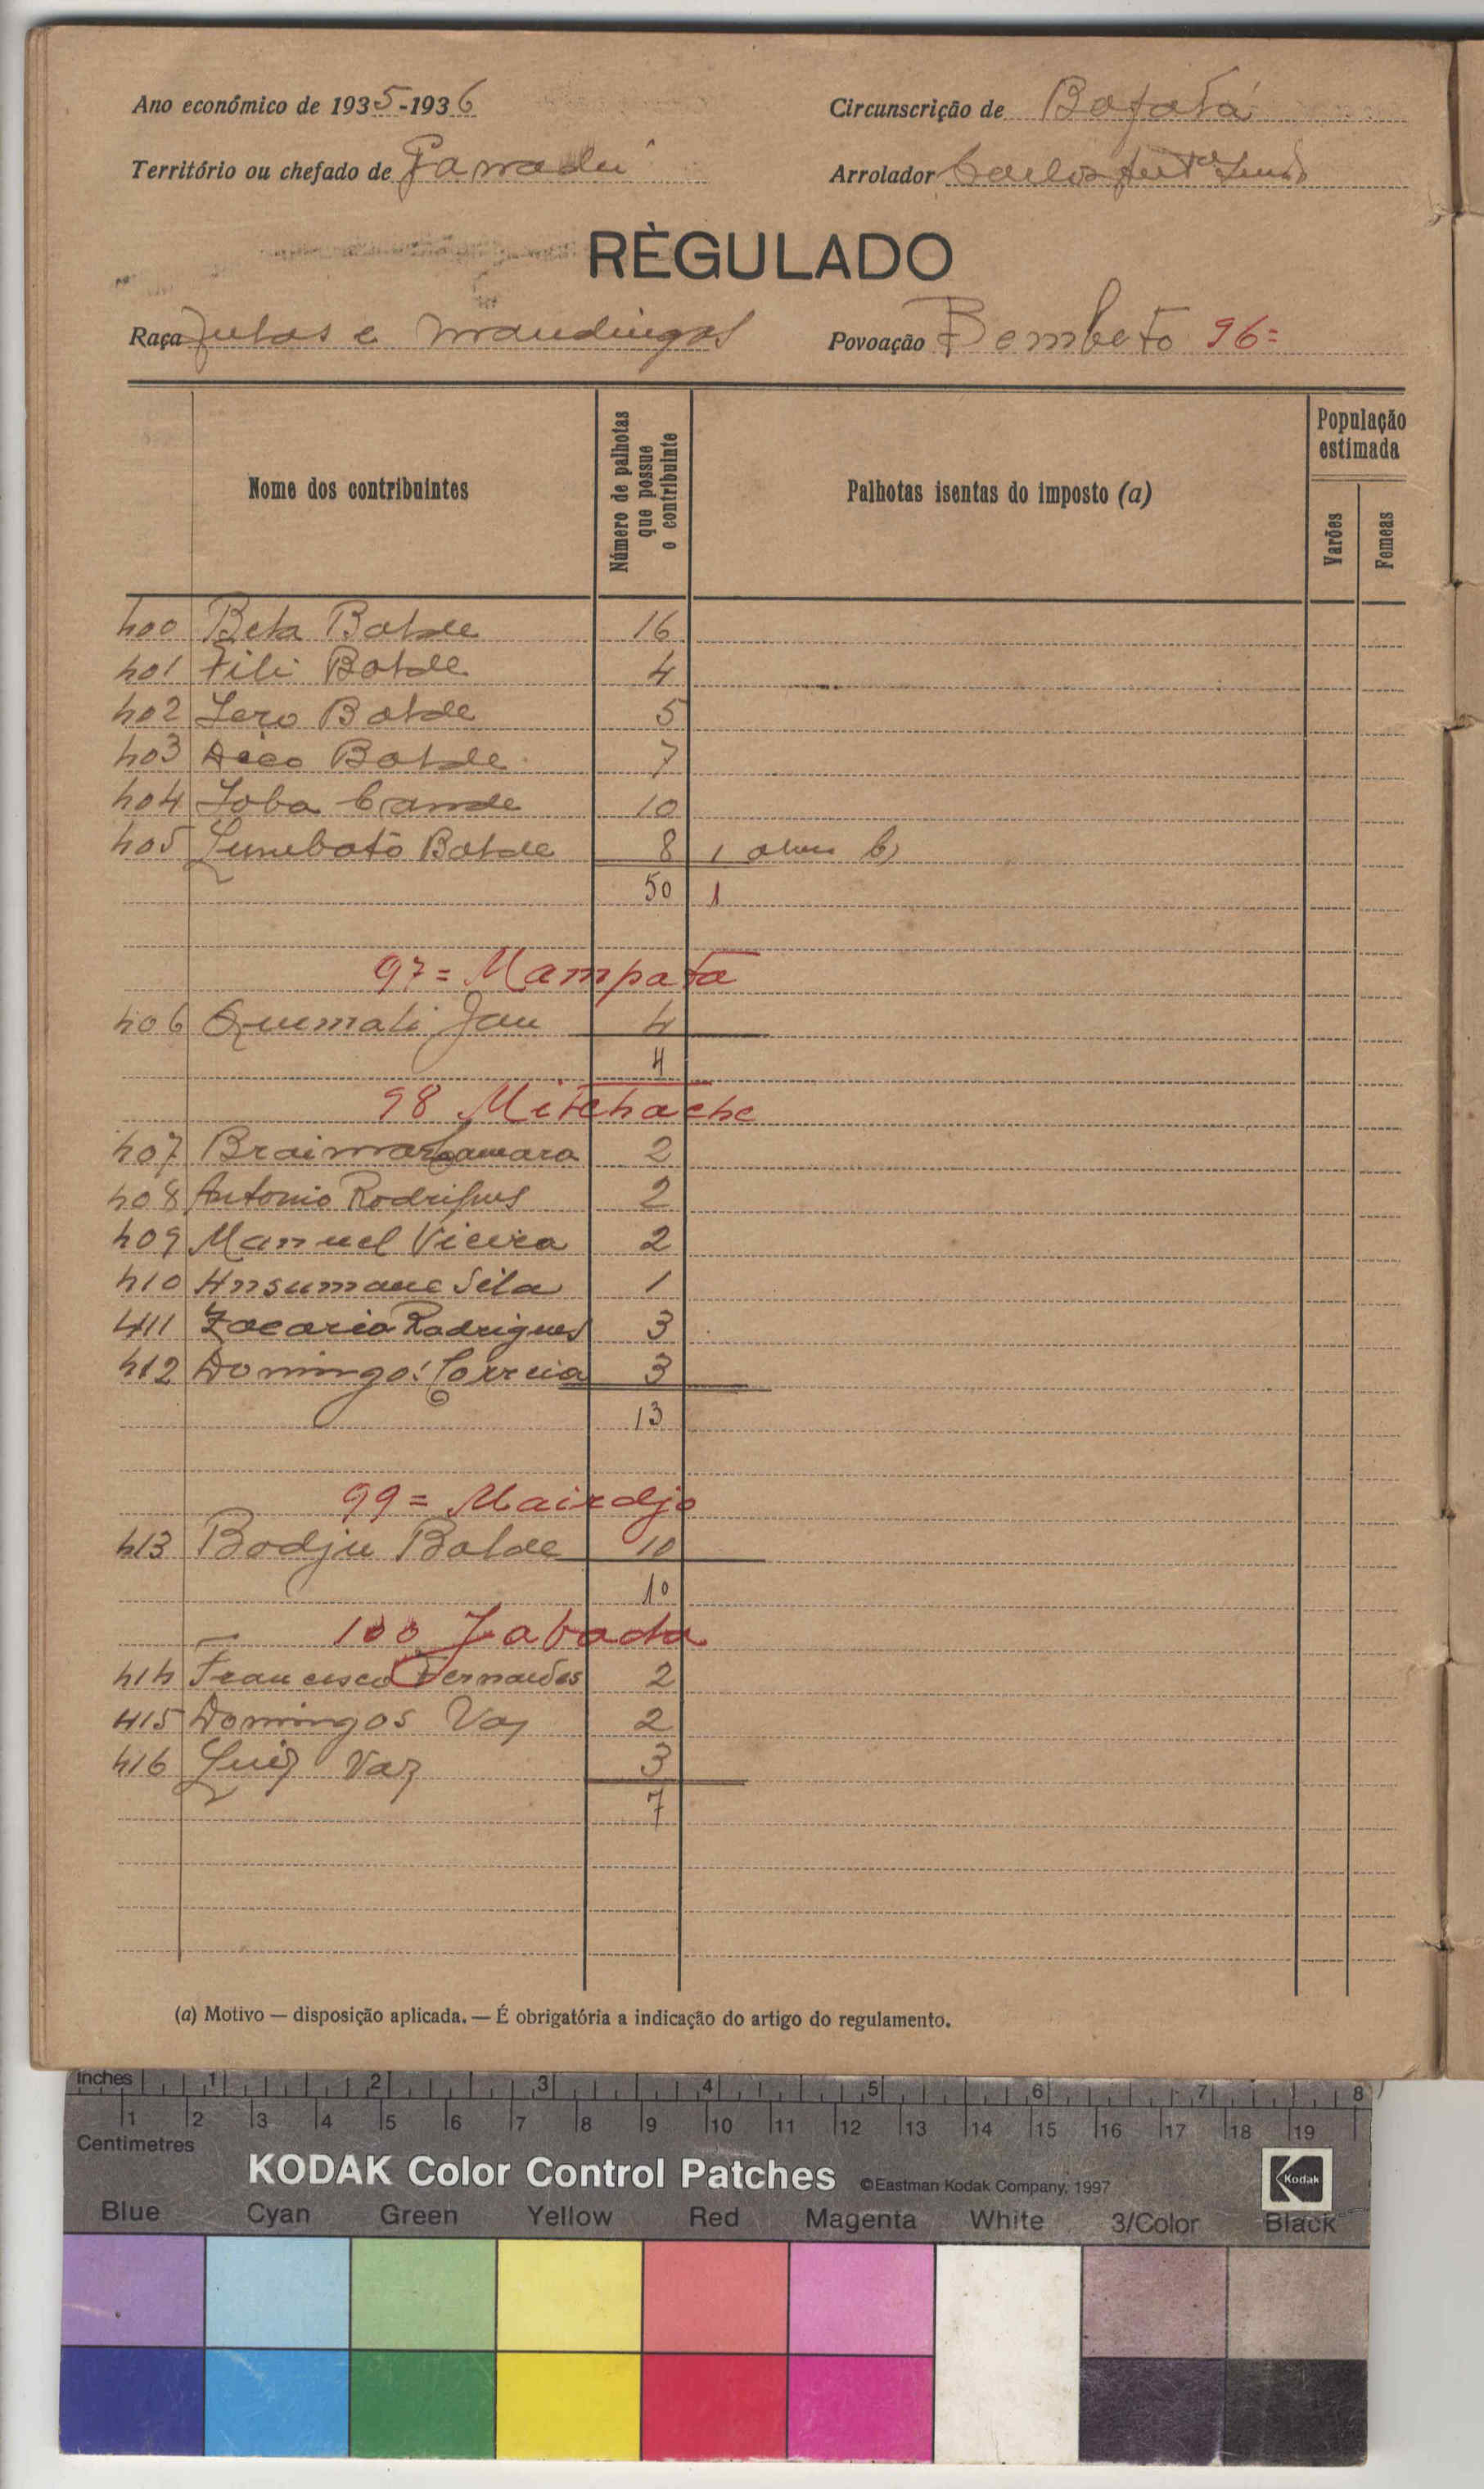 Ano económico de 1935-1936 Circunscrição de Bafatá
Território ou chefado de Ganadú Arrolador Carlos
RÈGULADO
Raça Fulas e mandingas Povoação Bembeto 96=
Nome dos contribuintes Número de palhotas que possue o contribuinte Palhotas isentas do imposto (a) População estimada Varões Femeas
400 Beta Balde 16
401 Fili Balde 4
402 Sero Balde 5
403 Dico Balde 7
404 Joba Cande 10
405 Balde 8 1 b)
50 1
97= Mampata
406 Quemali Jau 4
4
98 Mitehache
407 Braima Camara 2
408 Antonio Rodrigues 2
409 Manuel Vieira 2
410 Ansumane Sila 1
411 Zacaria Rodrigues 3
412 Domingos Correia 3
13
99= Mairdjo
413 Bodju Balde 10
10
100 Jabada
414 Francisco Fernandes 2
415 Domingos Vaz 2
416 Luiz Vaz 3
7
(a) Motivo — disposição aplicada. — É obrigatória a indicação do artigo do regulamento.
Inches 1 2 3 4 5 6 7 8
1 2 3 4 5 6 7 8 9 10 11 12 13 14 15 16 17 18 19
Centimetres
KODAK Color Control Patches ©Eastman Kodak Company, 1997 Kodak
Blue Cyan Green Yellow Red Magenta White 3/Color Black